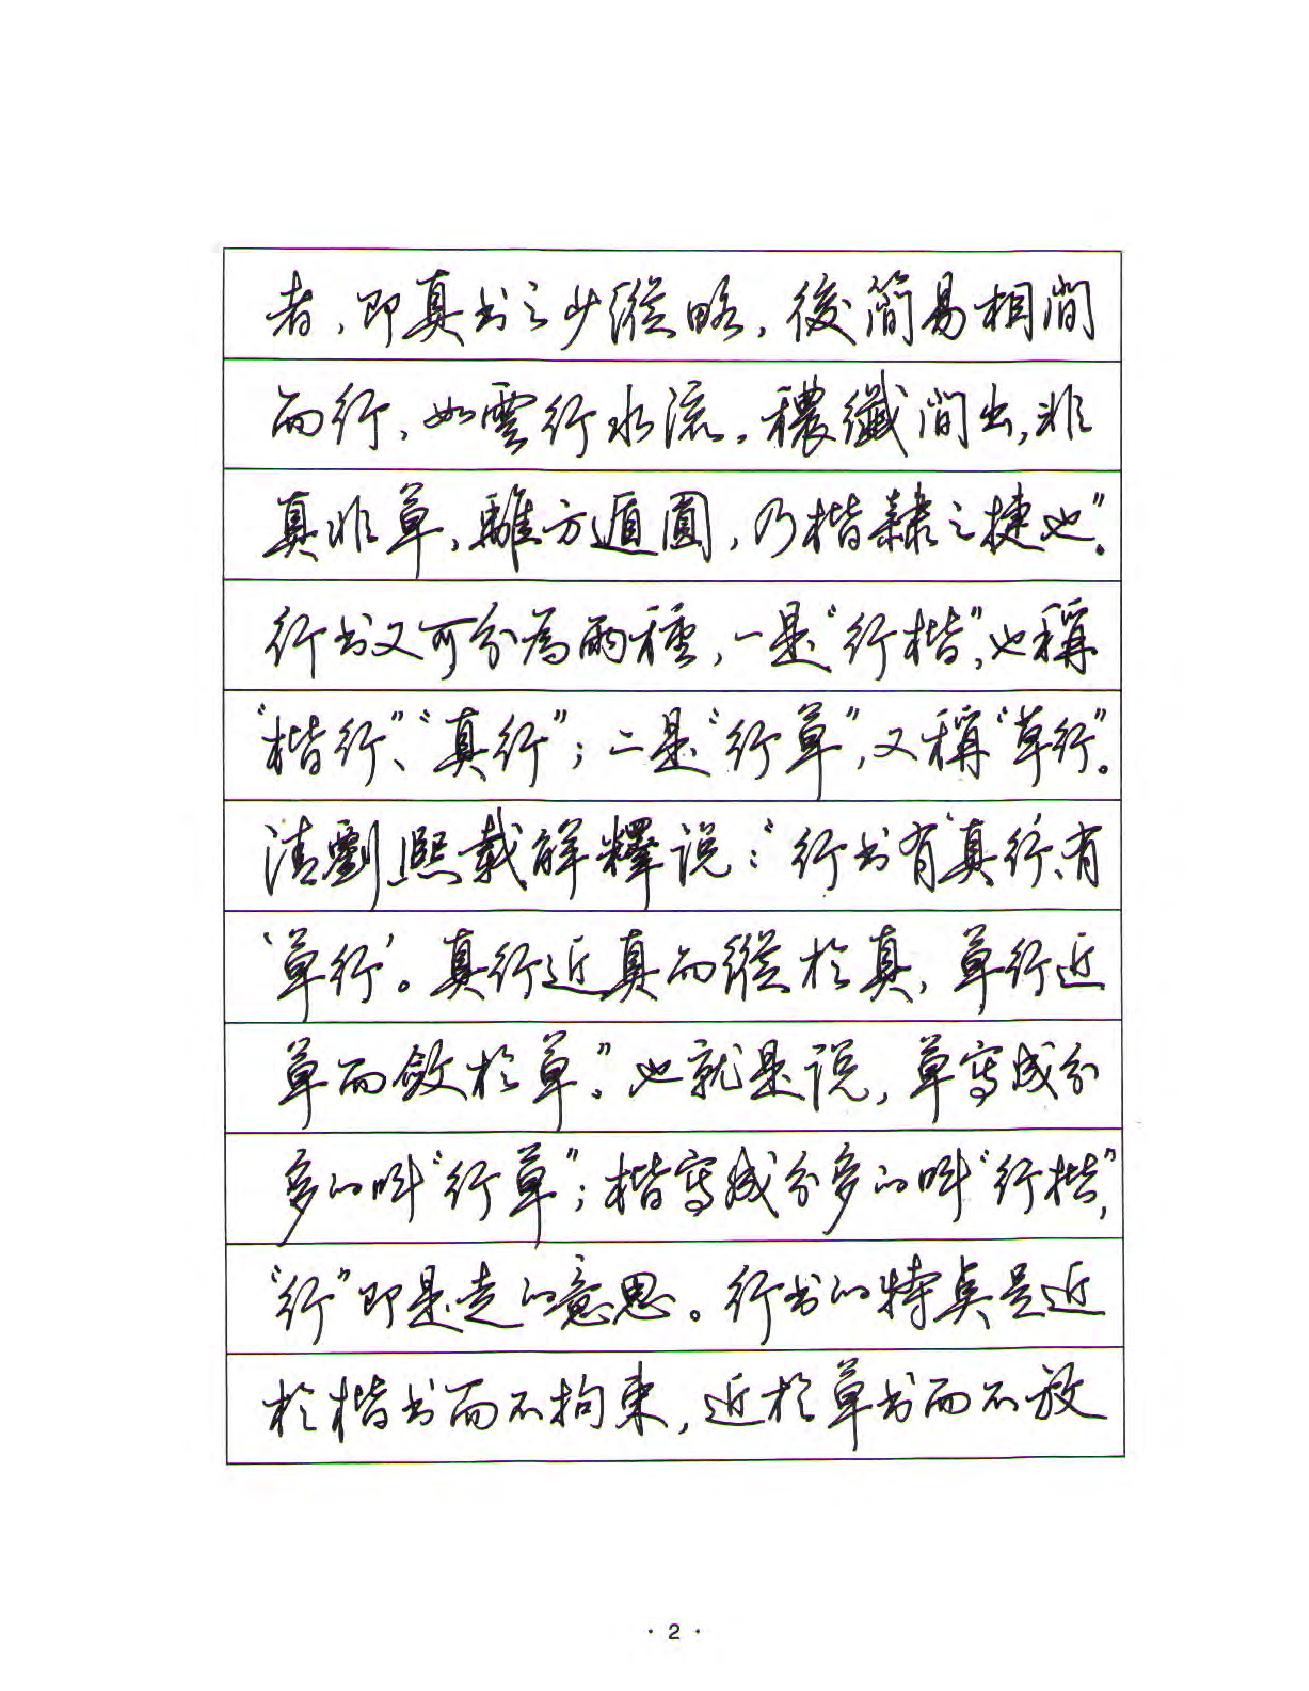 者，即真书之少縱略，後簡易相間
而行，如雲行水流，穠纖間出，非
真非草，離方遁圓，乃楷隸之捷也”。
行书又可分為兩種，一是“行楷”，也稱
“楷行”、“真行”；二是“行草”，又稱“草行”。
清劉熙載解釋说：“行书有‘真行’、有
‘草行’。真行近真而縱於真，草行近
草而斂於草。”也就是说，草寫成分
多的叫“行草”；楷寫成分多的叫“行楷”，
“行”即是走的意思。行书的特点是近
於楷书而不拘束，近於草书而不放
· 2 ·